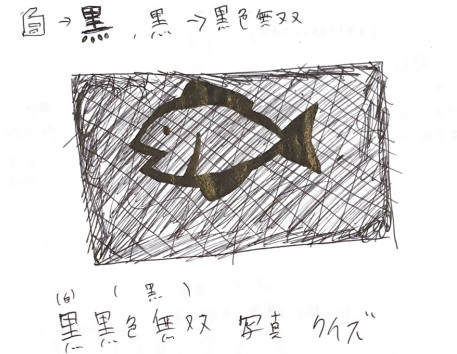 白 → 黒 , 黒 → 黒色無双
(白) ( 黒 )
黒黒色無双 写真 クイズ